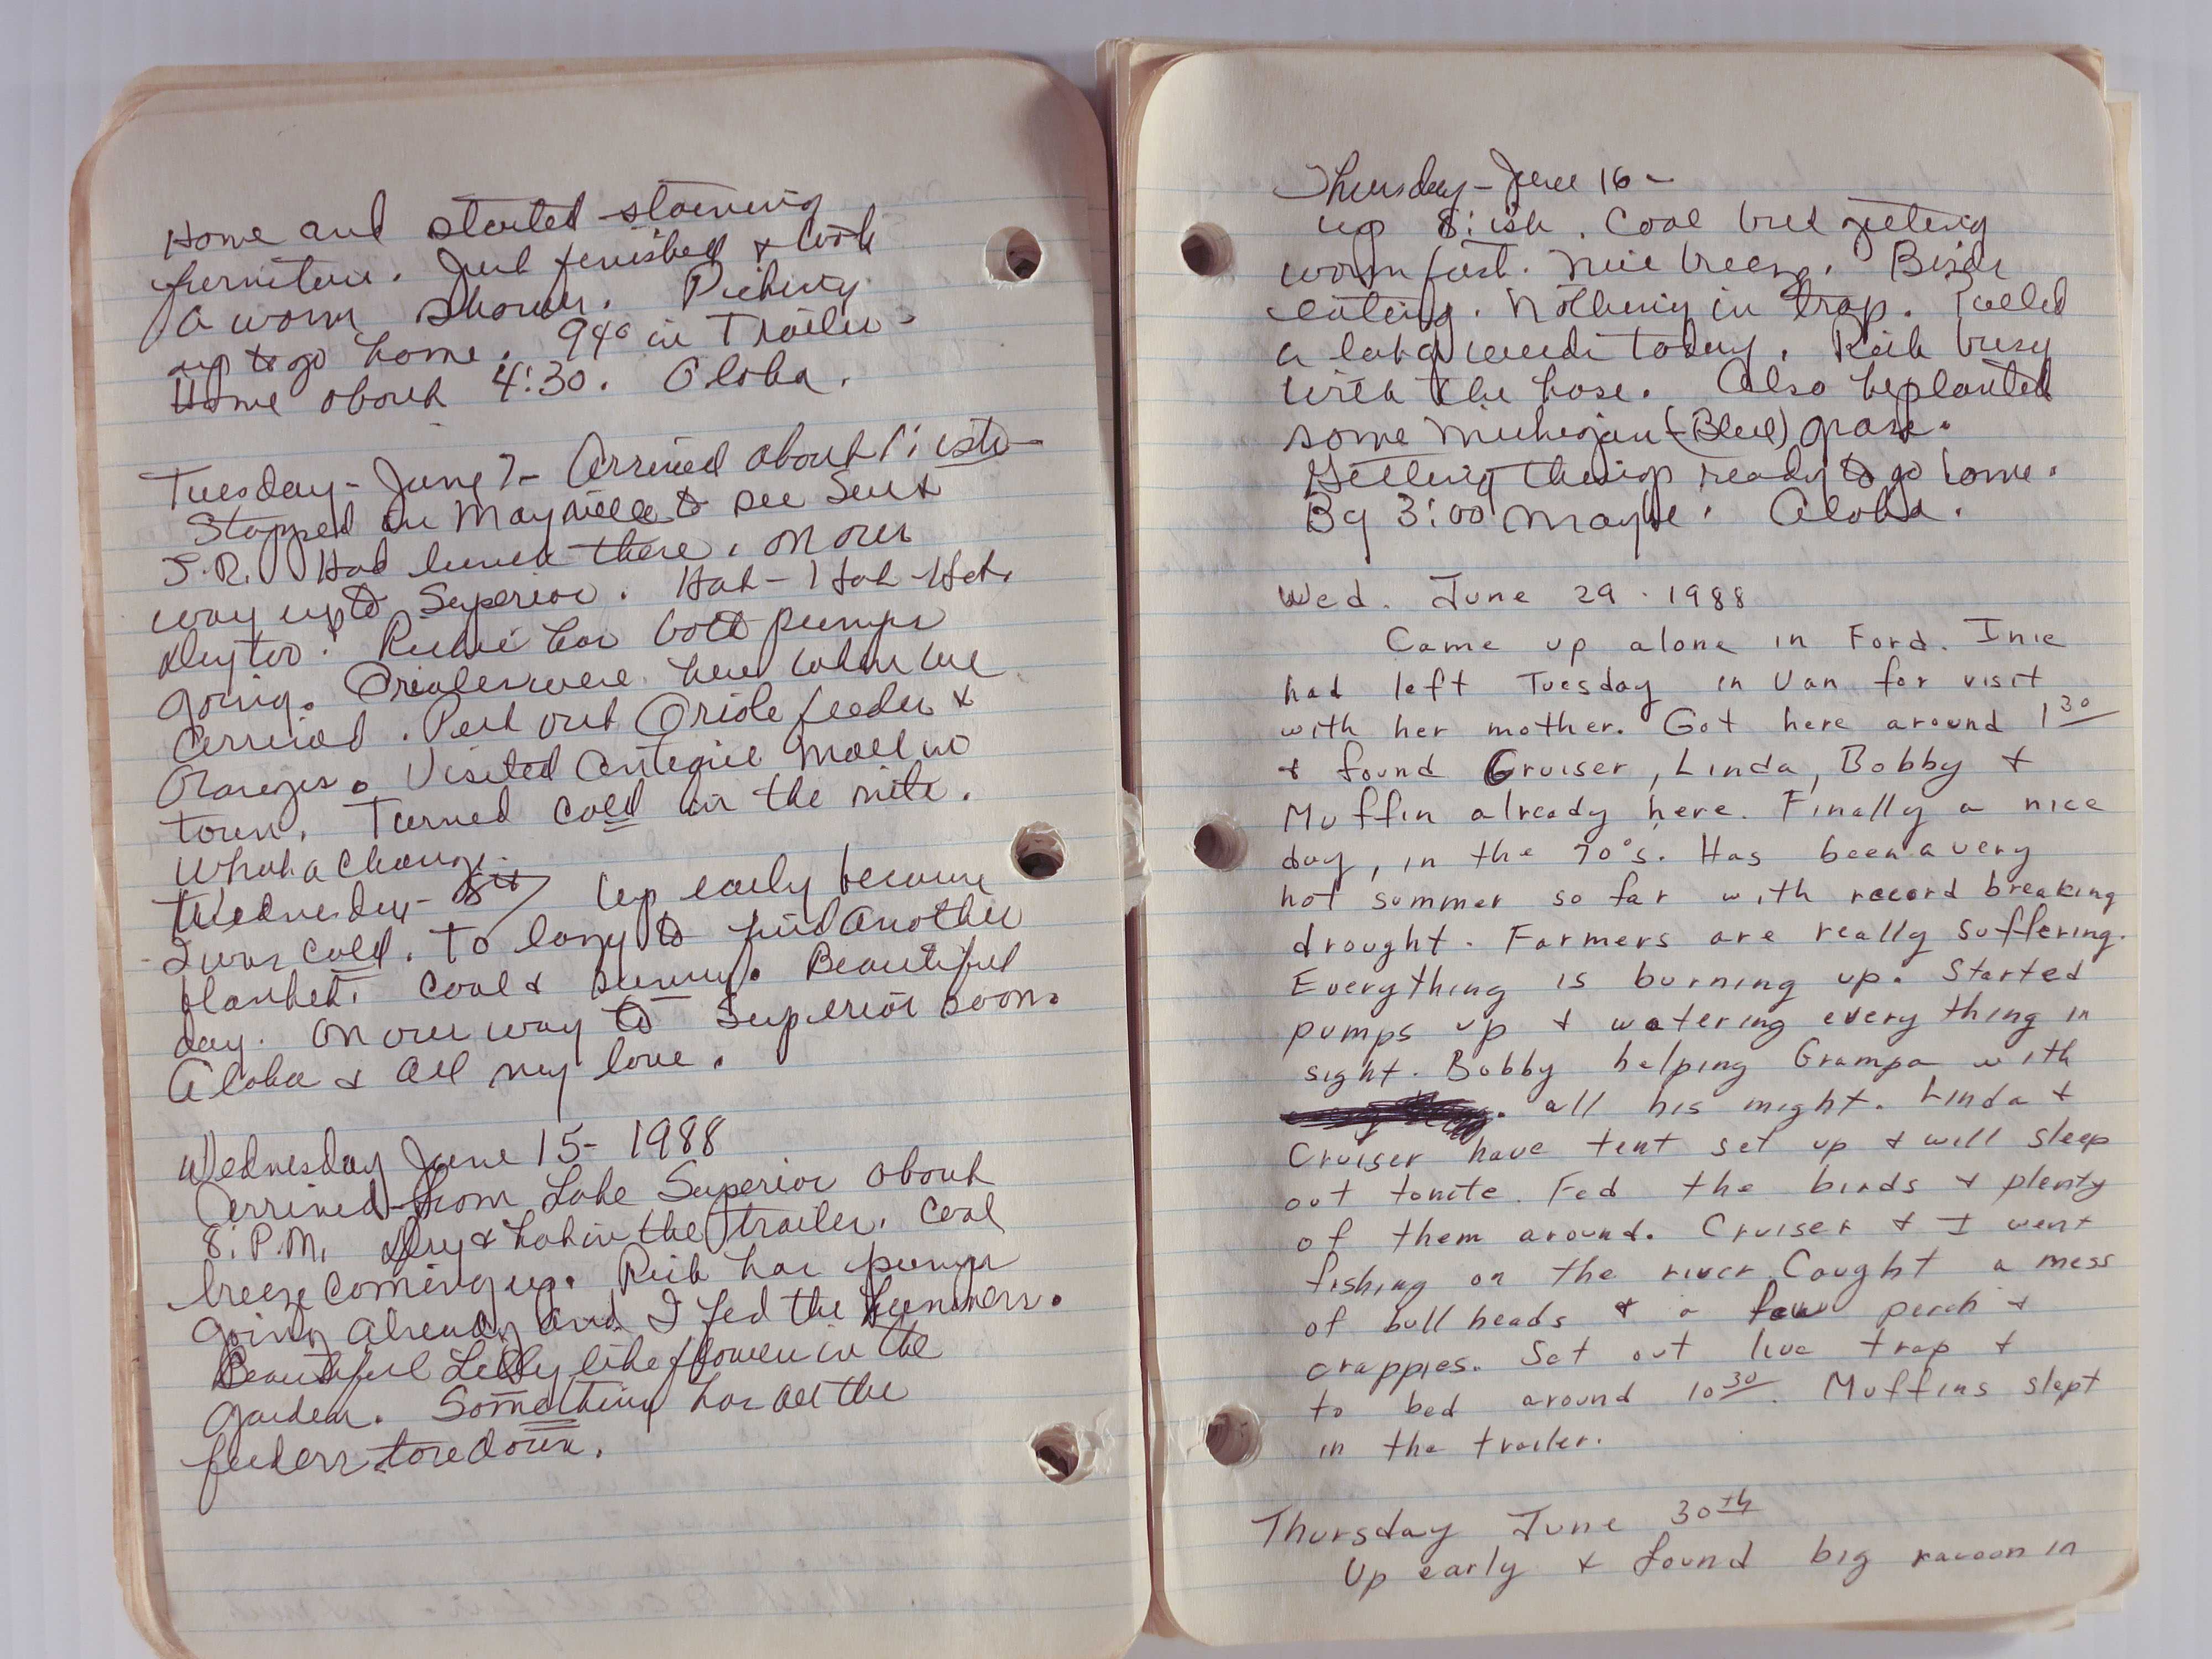 Home and started staining
furniture. Just finished & took
a warm shower. Picking
up to go home. 94° in Trailer.
Home about 4:30. Aloha.
Tuesday - June 7 - Arrived about 1:ish -
Stopped in Mayville to see Sue &
J.R. Had lunch there. on our
way up to Superior. Hot - Hot - Hot.
Dry too! Richie has both pumps
going. Orioles were here when we
arrived. Put out Oriole feeder &
Oranges. Visited Antique Mall in
town. Turned cold in the nite.
What a change.
Wednesday - 8th Up early because
I was cold. To lazy to find another
blanket. Cool & sunny. Beautiful
day. On our way to Superior soon.
Aloha & all my love.
Wednesday June 15 - 1988
Arrived from Lake Superior about
8: P.M. Dry & hot in the trailer. Cool
breeze coming up. Rich has pumps
going already and I fed the hummers.
Beautiful Lilly like flower in the
garden. Something has all the
feeders tore down.
Thursday - June 16 -
up 8:ish. Cool but getting
warm fast. Nice breeze. Birds
eating. Nothing in trap. Pulled
a lot of weeds today. Rich busy
with the hose. Also he planted
some Michigan (Blue) grass.
Getting things ready to go home.
By 3:00 maybe. Aloha.
Wed. June 29 - 1988
Came up alone in Ford. Inie
had left Tuesday in Van for visit
with her mother. Got here around 1 30
& found Cruiser, Linda, Bobby &
Muffin already here. Finally a nice
day, in the 70°s. Has been a very
hot summer so far with record breaking
drought. Farmers are really suffering.
Everything is burning up. Started
pumps up & watering every thing in
sight. Bobby helping Grampa with
all his might. Linda &
Cruiser have tent set up & will sleep
out tonite. Fed the birds & plenty
of them around. Cruiser & I went
fishing on the river. Caught a mess
of bull heads & a few perch &
crappies. Set out live trap &
to bed around 10 30. Muffins slept
in the trailer.
Thursday June 30th
Up early & found big racoon in